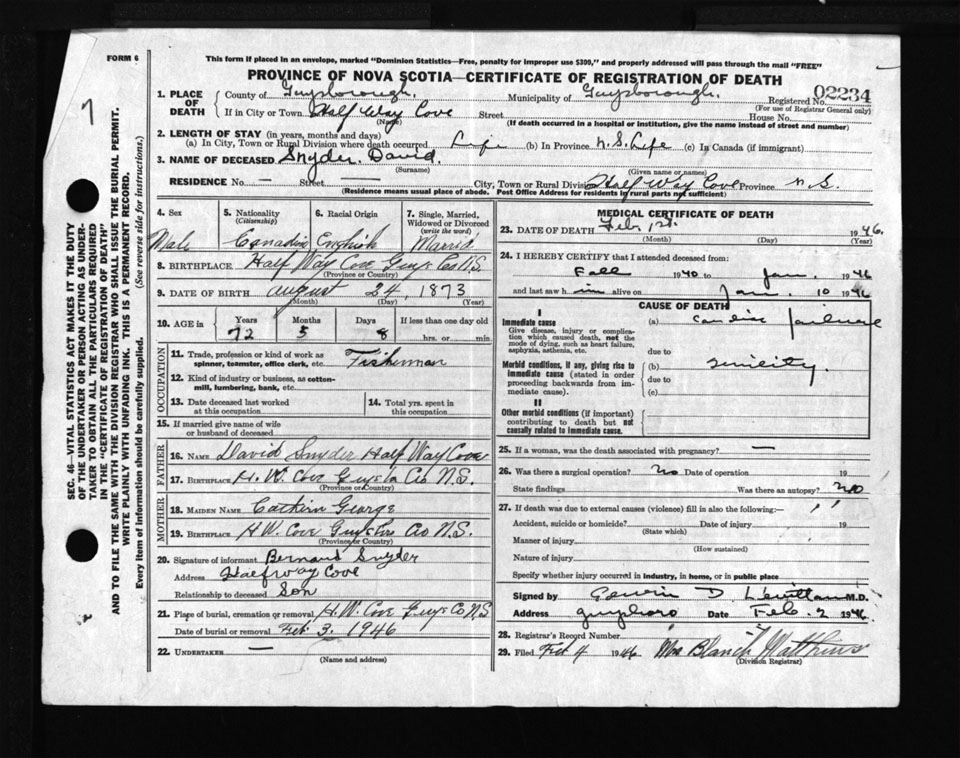 FORM 6
This form if placed in an envelope, marked "Dominion Statistics—Free, penalty for improper use $300," and properly addressed will pass through the mail "FREE"
PROVINCE OF NOVA SCOTIA—CERTIFICATE OF REGISTRATION OF DEATH
7
SEC. 46—VITAL STATISTICS ACT MAKES IT THE DUTY
OF THE UNDERTAKER OR PERSON ACTING AS UNDER-
TAKER TO OBTAIN ALL THE PARTICULARS REQUIRED
IN THE "CERTIFICATE OF REGISTRATION OF DEATH"
AND TO FILE THE SAME WITH THE DIVISION REGISTRAR WHO SHALL ISSUE THE BURIAL PERMIT.
WRITE PLAINLY WITH UNFADING INK. THIS IS A PERMANENT RECORD.
Every item of information should be carefully supplied. (See reverse side for instructions.)
1. PLACE OF DEATH County of Guysborough. Municipality of Guysborough. Registered No. 02234
(For use of Registrar General only)
If in City or Town Half Way Cove Street House No.
(Name) (If death occurred in a hospital or institution, give the name instead of street and number)
2. LENGTH OF STAY (in years, months and days)
(a) In City, Town or Rural Division where death occurred Life (b) In Province N.S. Life (c) In Canada (if immigrant)
3. NAME OF DECEASED Snyder. David.
(Surname) (Given name or names)
RESIDENCE No. — Street — City, Town or Rural Division Half Way Cove Province N.S.
(Residence means usual place of abode. Post Office Address for residents in rural parts not sufficient)
4. Sex Male
5. Nationality (Citizenship) Canadian
6. Racial Origin English
7. Single, Married, Widowed or Divorced (write the word) Married
8. BIRTHPLACE Half Way Cove Guys Co N.S.
(Province or Country)
9. DATE OF BIRTH August 24, 1873
(Month) (Day) (Year)
10. AGE in Years 72 Months 5 Days 8 If less than one day old hrs. or min.
OCCUPATION
11. Trade, profession or kind of work as spinner, teamster, office clerk, etc. Fisherman
12. Kind of industry or business, as cotton-mill, lumbering, bank, etc.
13. Date deceased last worked at this occupation
14. Total yrs. spent in this occupation
15. If married give name of wife or husband of deceased
FATHER
16. NAME David Snyder Half Way Cove
17. BIRTHPLACE H. W. Cove Guysbo Co N.S.
(Province or Country)
MOTHER
18. MAIDEN NAME Cathern George
19. BIRTHPLACE H W. Cove Guysboro Co N.S.
(Province or Country)
20. Signature of informant Bernard Snyder
Address Halfway Cove
Relationship to deceased Son
21. Place of burial, cremation or removal H. W. Cove Guys Co N.S
Date of burial or removal Feb 3, 1946
22. UNDERTAKER —
(Name and address)
MEDICAL CERTIFICATE OF DEATH
23. DATE OF DEATH Feb, 1st. 1946.
(Month) (Day) (Year)
24. I HEREBY CERTIFY that I attended deceased from:
Fall 1940 to Jan. 1946
and last saw him alive on Jan. 10 1946
CAUSE OF DEATH
I
Immediate cause (a) Cardiac failure
Give disease, injury or complication which caused death, not the mode of dying, such as heart failure, asphyxia, asthenia, etc.
due to
Morbid conditions, if any, giving rise to immediate cause (stated in order proceeding backwards from immediate cause). (b) Senility.
due to
(c)
II
Other morbid conditions (if important) contributing to death but not causally related to immediate cause.
25. If a woman, was the death associated with pregnancy? —
26. Was there a surgical operation? No Date of operation 19
State findings Was there an autopsy? No
27. If death was due to external causes (violence) fill in also the following:—
Accident, suicide or homicide? Date of injury 19
(State which)
Manner of injury
(How sustained)
Nature of injury
Specify whether injury occurred in industry, in home, or in public place
Signed by D M.D.
Address Guysboro Date Feb. 2 1946
28. Registrar's Record Number
29. Filed Feb 4 1946 Mrs Blanch Matthews
(Division Registrar)